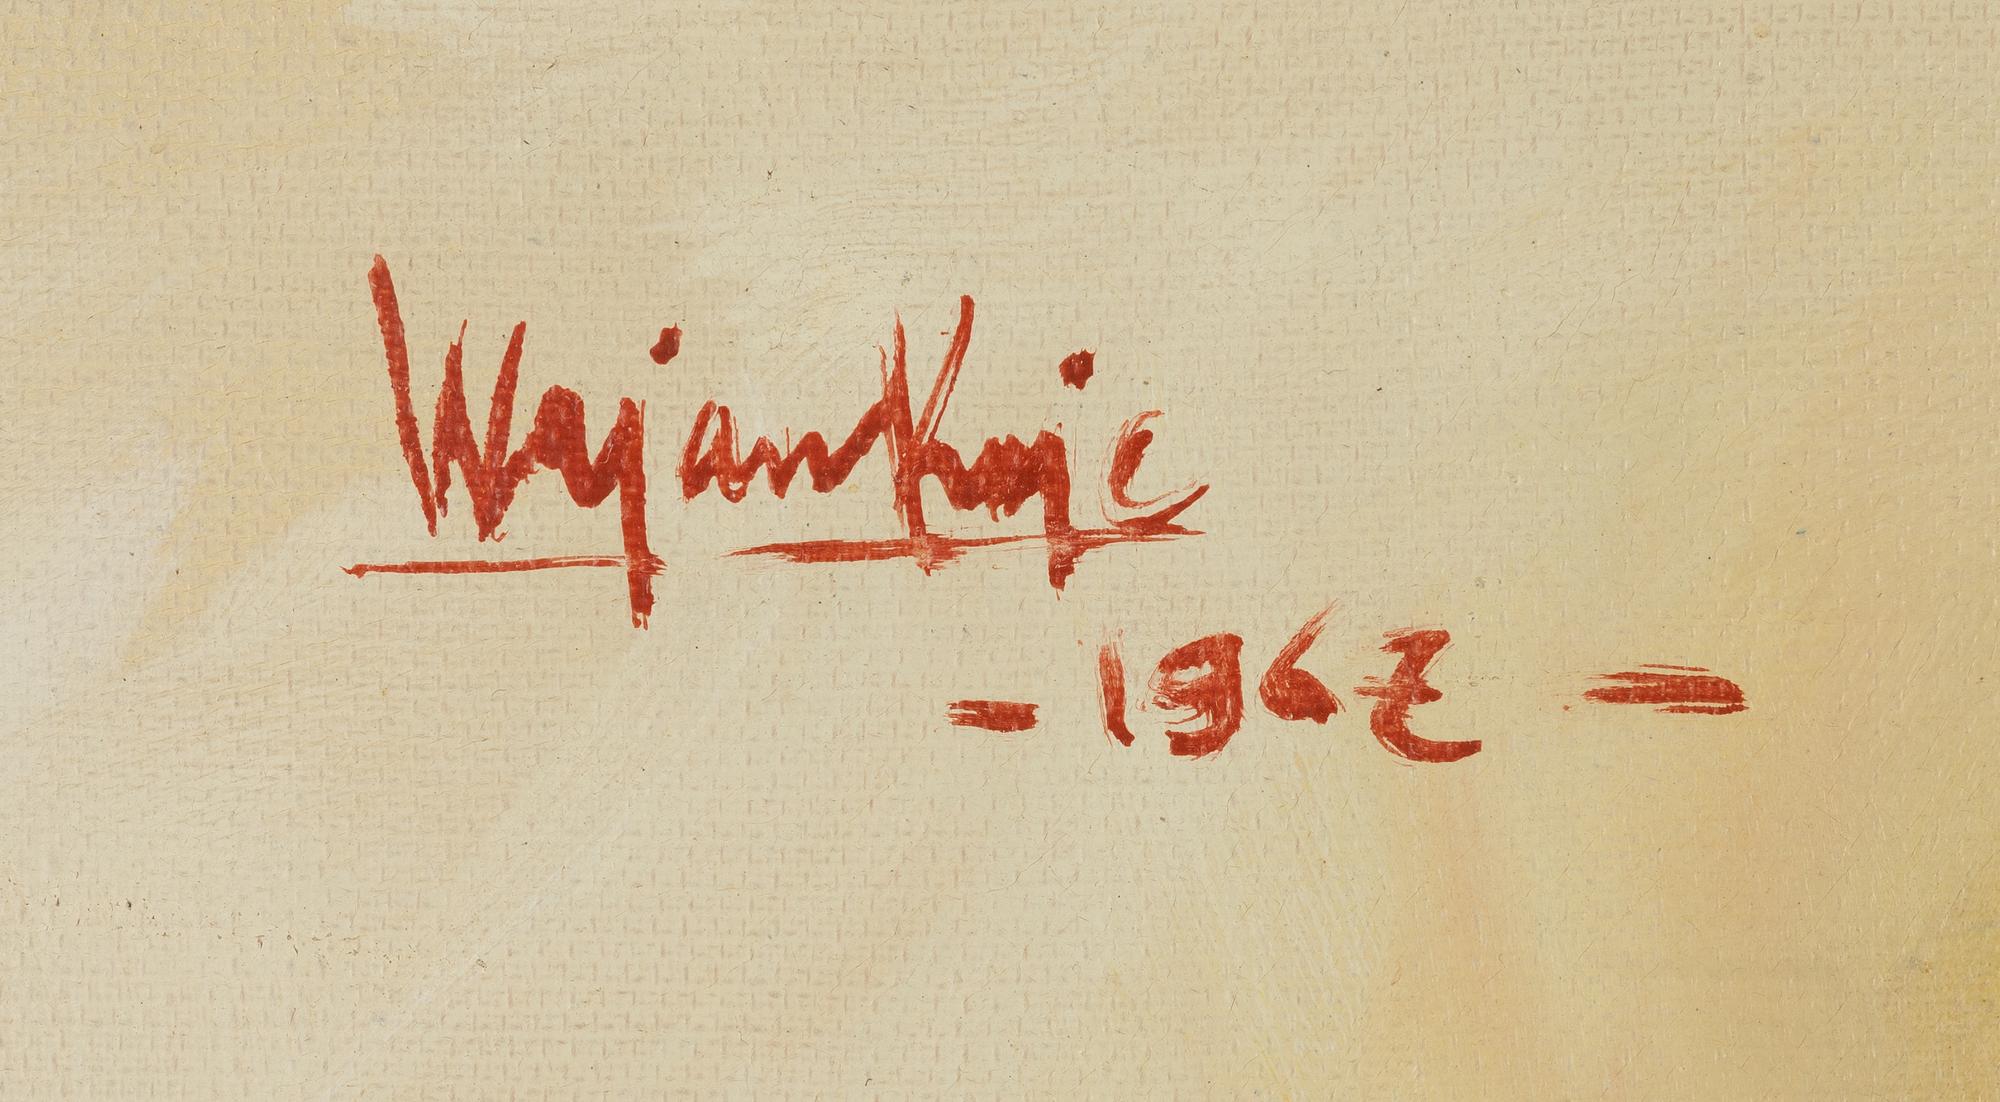 Wajankaje
- 1962 -